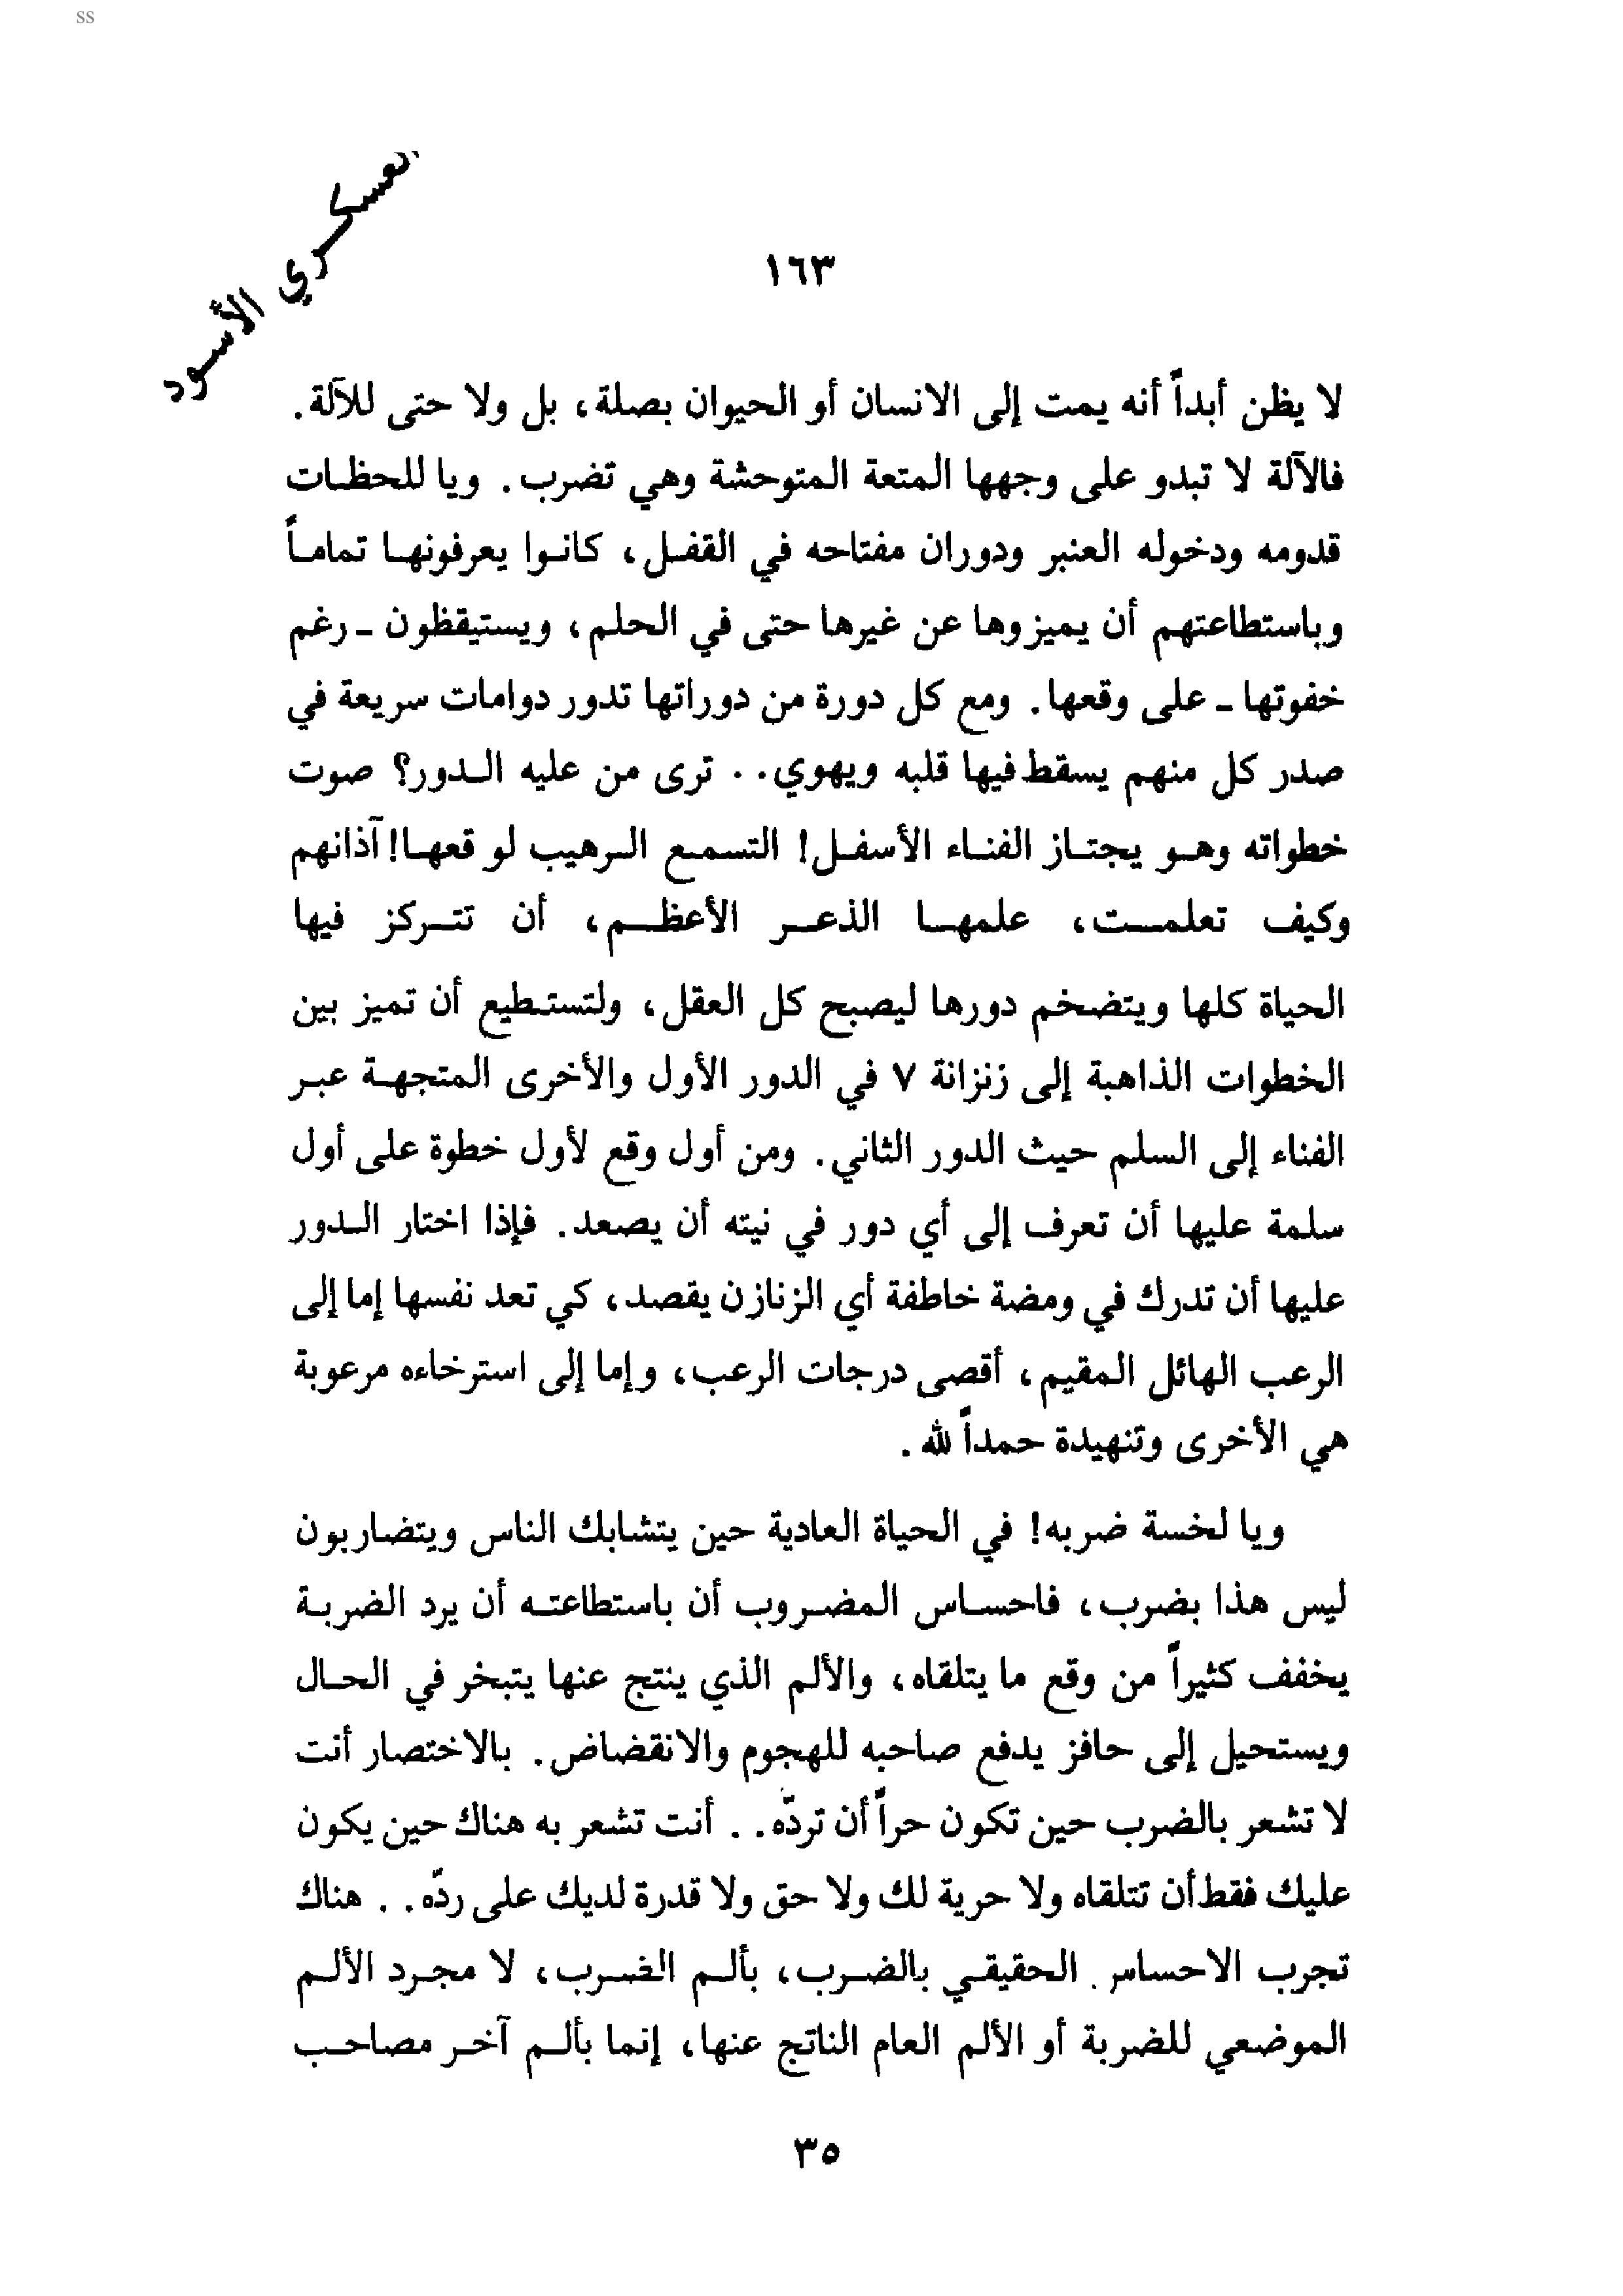 ss
العسكري الأسود
١٦٣
لا يظن أبداً أنه يمت إلى الانسان أو الحيوان بصلة، بل ولا حتى للآلة.
فالآلة لا تبدو على وجهها المتعة المتوحشة وهي تضرب. ويا للحظات
قدومه ودخوله العنبر ودوران مفتاحه في القفل، كانوا يعرفونها تماماً
وباستطاعتهم أن يميزوها عن غيرها حتى في الحلم، ويستيقظون - رغم
خفوتها - على وقعها. ومع كل دورة من دوراتها تدور دوامات سريعة في
صدر كل منهم يسقط فيها قلبه ويهوي.. ترى من عليه الدور؟ صوت
خطواته وهو يجتاز الفناء الأسفل! التسمع الرهيب لو قعها! آذانهم
وكيف تعلمت، علمها الذعر الأعظم، أن تتركز فيها
الحياة كلها ويتضخم دورها ليصبح كل العقل، ولتستطيع أن تميز بين
الخطوات الذاهبة إلى زنزانة ٧ في الدور الأول والأخرى المتجهة عبر
الفناء إلى السلم حيث الدور الثاني. ومن أول وقع لأول خطوة على أول
سلمة عليها أن تعرف إلى أي دور في نيته أن يصعد. فإذا اختار الدور
عليها أن تدرك في ومضة خاطفة أي الزنازن يقصد، كي تعد نفسها إما إلى
الرعب الهائل المقيم، أقصى درجات الرعب، وإما إلى استرخاءه مرعوبة
هي الأخرى وتنهيدة حمداً لله.
ويا لخسة ضربه! في الحياة العادية حين يتشابك الناس ويتضاربون
ليس هذا بضرب، فاحساس المضروب أن باستطاعته أن يرد الضربة
يخفف كثيراً من وقع ما يتلقاه، والألم الذي ينتج عنها يتبخر في الحال
ويستحيل إلى حافز يدفع صاحبه للهجوم والانقضاض. بالاختصار أنت
لا تشعر بالضرب حين تكون حراً أن تردّه.. أنت تشعر به هناك حين يكون
عليك فقط أن تتلقاه ولا حرية لك ولا حق ولا قدرة لديك على ردّه.. هناك
تجرب الاحساس الحقيقي بالضرب، بألم الضرب، لا مجرد الألم
الموضعي للضربة أو الألم العام الناتج عنها، إنما بألم آخر مصاحب
٣٥